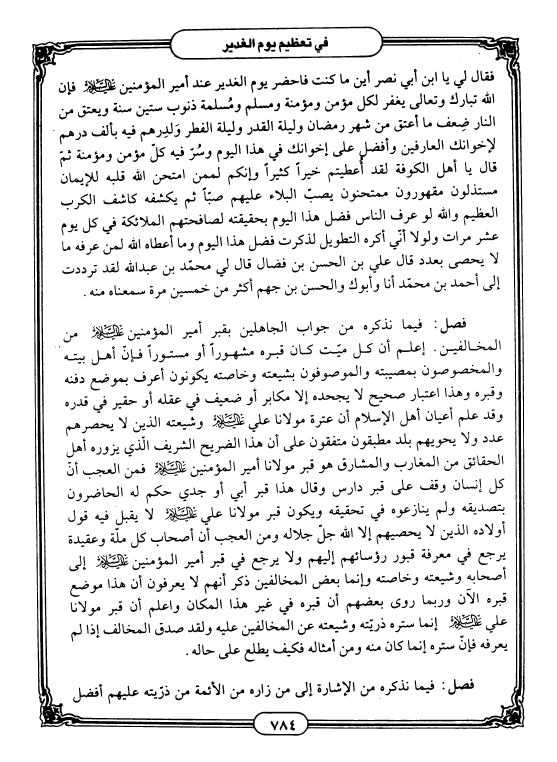 في تعظيم يوم الغدير
فقال لي يا ابن أبي نصر أين ما كنت فاحضر يوم الغدير عند أمير المؤمنين عليه السلام فإن
الله تبارك وتعالى يغفر لكل مؤمن ومؤمنة ومسلم ومُسلمة ذنوب ستين سنة ويعتق من
النار ضِعف ما أعتق من شهر رمضان وليلة القدر وليلة الفطر وَلدِرهم فيه بألف درهم
لإخوانك العارفين وأفضل على إخوانك في هذا اليوم وسُرّ فيه كلّ مؤمن ومؤمنة ثمّ
قال يا أهل الكوفة لقد أُعطيتم خيراً كثيراً وإنكم لممن امتحن الله قلبه للإيمان
مستذلون مقهورون ممتحنون يصبّ البلاء عليهم صبّاً ثم يكشفه كاشف الكرب
العظيم والله لو عرف الناس فضل هذا اليوم بحقيقته لصافحتهم الملائكة في كل يوم
عشر مرات ولولا أنّي أكره التطويل لذكرت فضل هذا اليوم وما أعطاه الله لمن عرفه ما
لا يحصى بعدد قال علي بن الحسن بن فضال قال لي محمّد بن عبدالله لقد ترددت
إلى أحمد بن محمّد أنا وأبوك والحسن بن جهم أكثر من خمسين مرة سمعناه منه .
فصل : فيما نذكره من جواب الجاهلين بقبر أمير المؤمنين عليه السلام من
المخالفين . إعلم أن كل ميّت كان قبره مشهوراً أو مستوراً فإنّ أهل بيته
والمخصوصون بمصيبته والموصوفون بشيعته وخاصته يكونون أعرف بموضع دفنه
وقبره وهذا اعتبار صحيح لا يجحده إلا مكابر أو ضعيف في عقله أو حقير في قدره
وقد علم أعيان أهل الإسلام أن عترة مولانا علي عليه السلام وشيعته الذين لا يحصرهم
عدد ولا يحويهم بلد مطبقون متفقون على أن هذا الضريح الشريف الّذي يزوره أهل
الحقائق من المغارب والمشارق هو قبر مولانا أمير المؤمنين عليه السلام فمن العجب أنّ
كل إنسان وقف على قبر دارس وقال هذا قبر أبي أو جدي حكم له الحاضرون
بتصديقه ولم ينازعوه في تحقيقه ويكون قبر مولانا علي عليه السلام لا يقبل فيه قول
أولاده الذين لا يحصيهم إلا الله جلّ جلاله ومن العجب أن أصحاب كل ملّة وعقيدة
يرجع في معرفة قبور رؤسائهم إليهم ولا يرجع في قبر أمير المؤمنين عليه السلام إلى
أصحابه وشيعته وخاصته وإنما بعض المخالفين ذكر أنهم لا يعرفون أن هذا موضع
قبره الآن وربما روى بعضهم أن قبره في غير هذا المكان واعلم أن قبر مولانا
علي عليه السلام إنما ستره ذرّيته وشيعته عن المخالفين عليه ولقد صدق المخالف إذا لم
يعرفه فإنّ ستره إنما كان منه ومن أمثاله فكيف يطلع على حاله .
فصل : فيما نذكره من الإشارة إلى من زاره من الأئمة من ذرّيته عليهم أفضل
٧٨٤